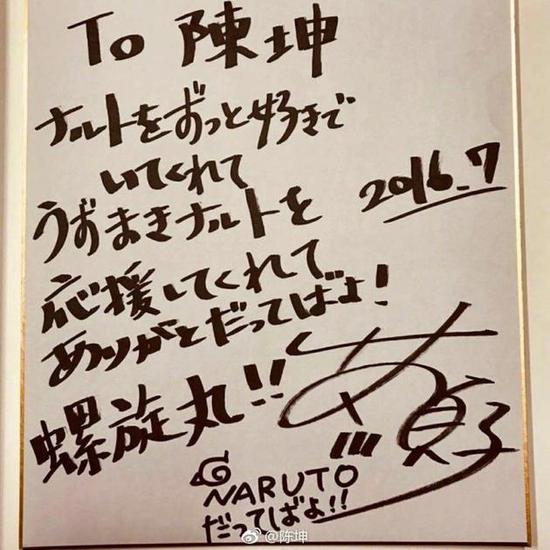 To 陳坤
ナルトをずっと好きで
いてくれて
2016.7
うずまきナルトを
応援してくれて
ありがとだってばよ!
螺旋丸!!
NARUTO
だってばよ!!
@陈坤